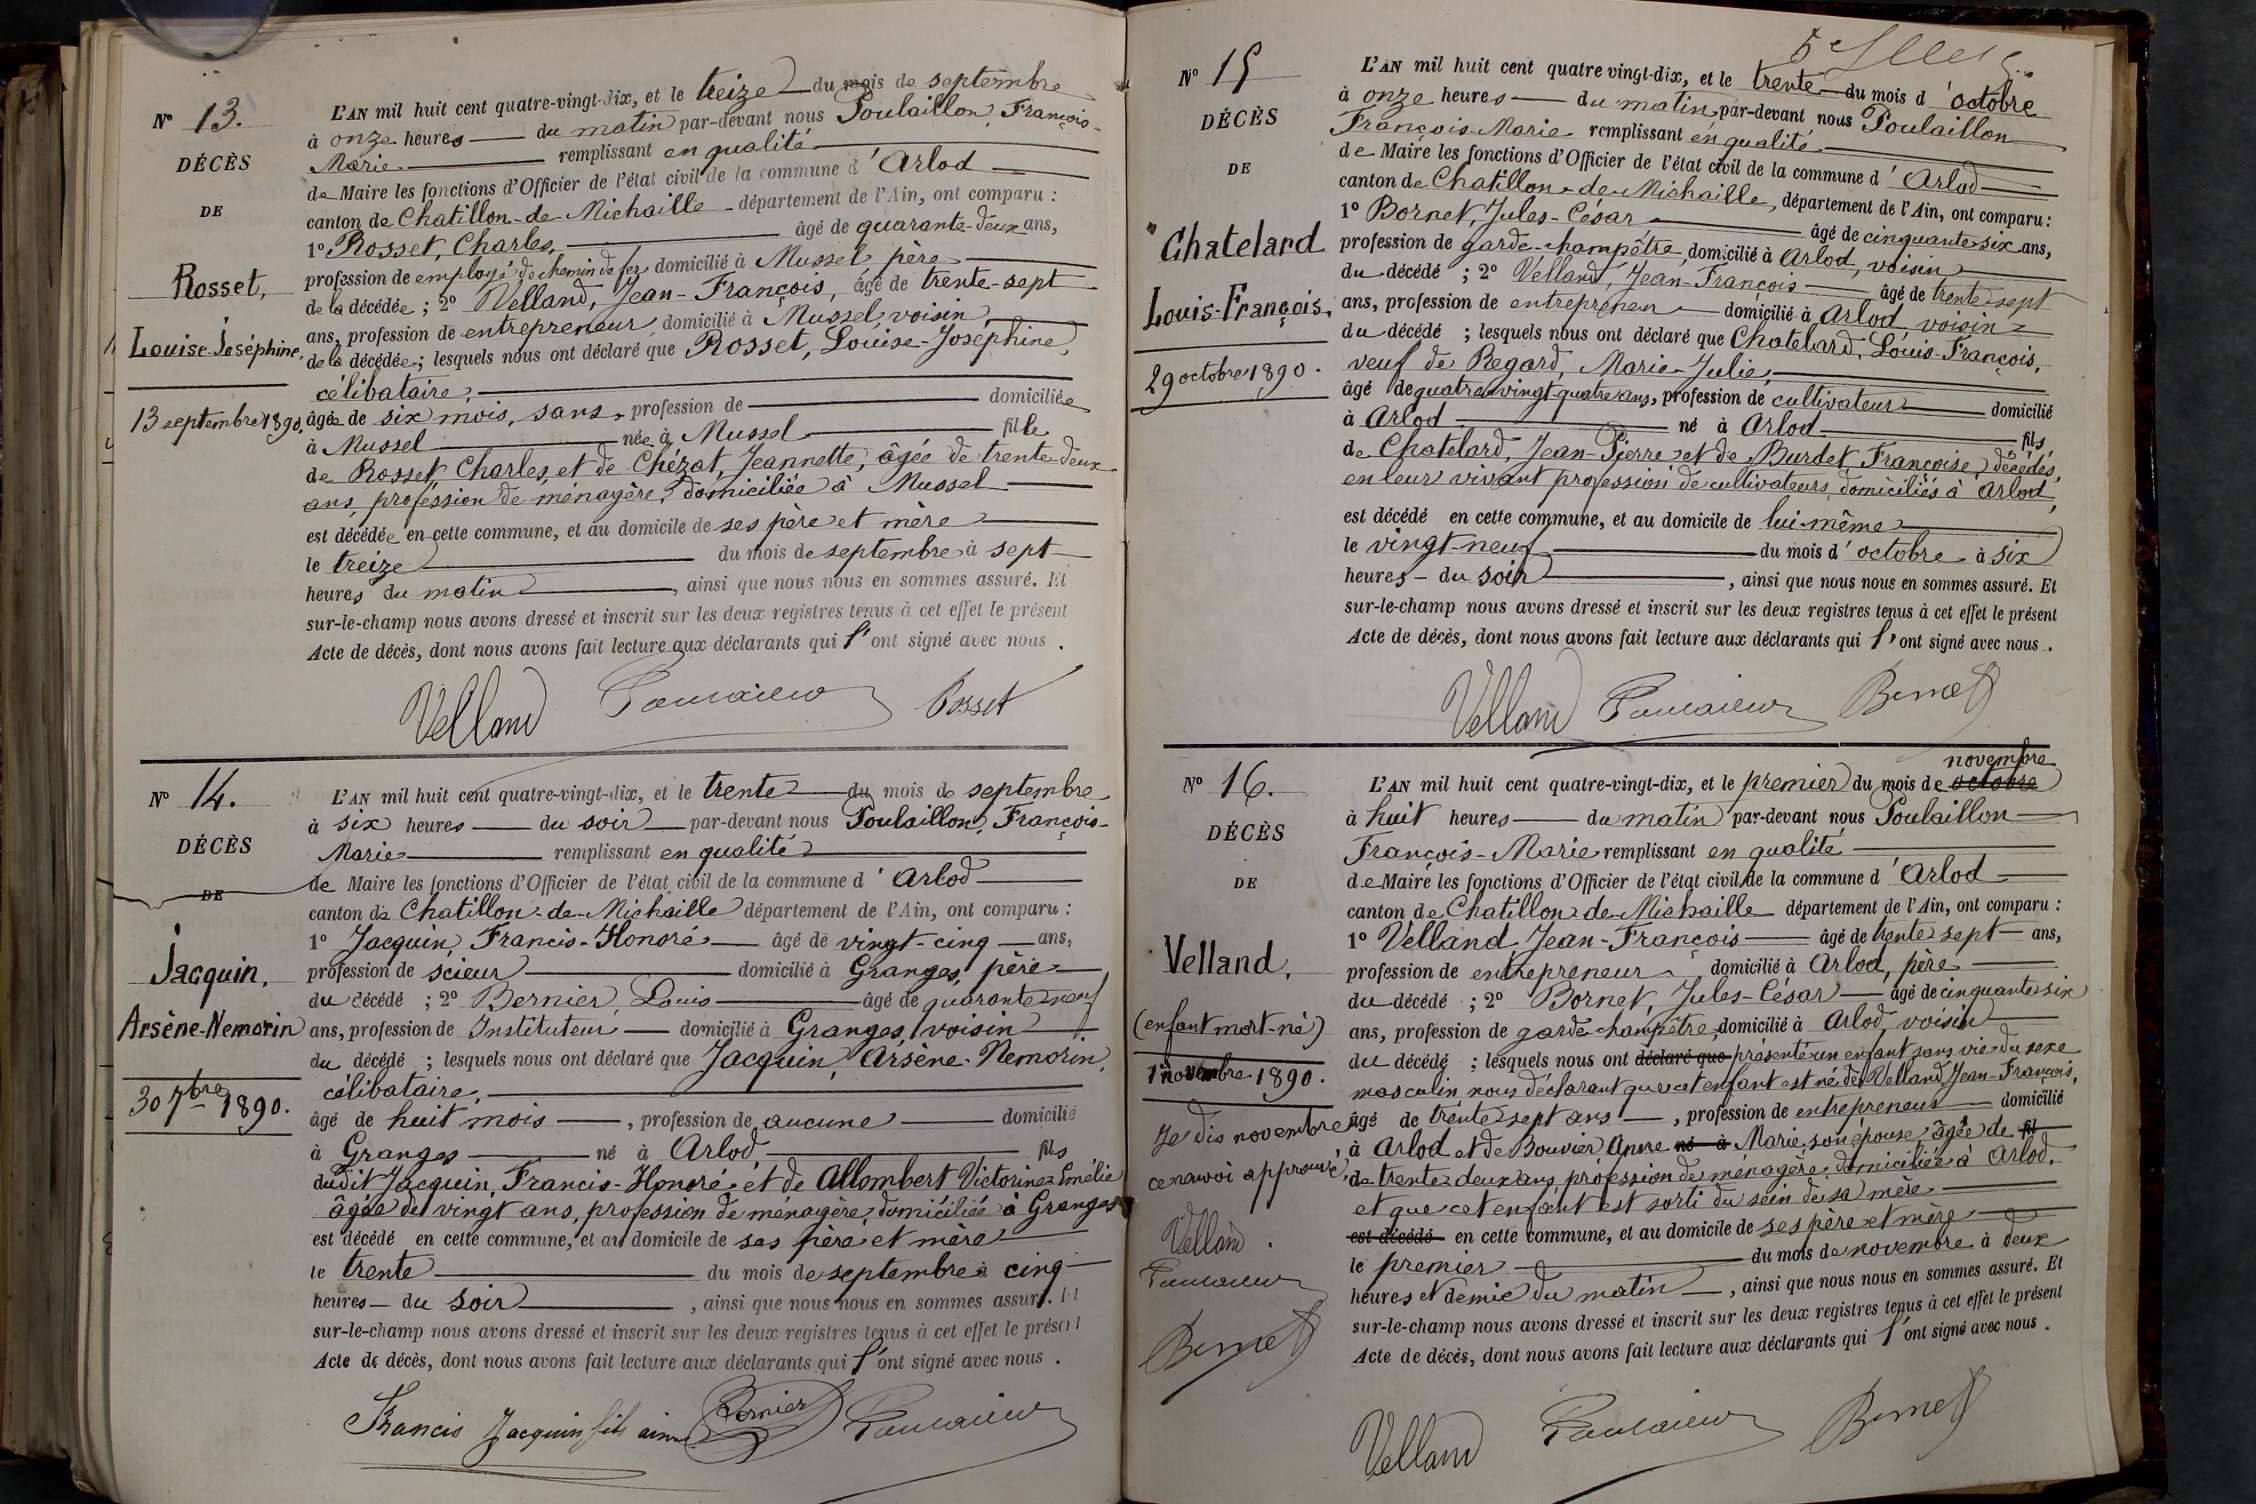 Nº 13.
DÉCÈS
DE
Rosset,
Louise-Joséphine.
13 septembre 1890.
L'AN mil huit cent quatre-vingt-dix, et le treize du mois de septembre
à onze heures du matin par-devant nous Poulaillon, François-
Marie remplissant en qualité
de Maire les fonctions d'Officier de l'état civil de la commune d'Arlod
canton de Chatillon-de-Michaille département de l'Ain, ont comparu :
1º Rosset, Charles, âgé de quarante-deux ans,
profession de employé de chemin de fer domicilié à Mussel père
de la décédée ; 2º Velland, Jean-François, âgé de trente-sept
ans, profession de entrepreneur domicilié à Mussel, voisin
de la décédée ; lesquels nous ont déclaré que Rosset, Louise-Joséphine,
célibataire,
âgée de six mois, sans profession de domiciliée
à Mussel née à Mussel fille
de Rosset, Charles, et de Chézat, Jeannette, âgée de trente-deux
ans, profession de ménagère, domiciliée à Mussel
est décédée en cette commune, et au domicile de ses père et mère
le treize du mois de septembre à sept
heures du matin, ainsi que nous nous en sommes assuré. Et
sur-le-champ nous avons dressé et inscrit sur les deux registres tenus à cet effet le présent
Acte de décès, dont nous avons fait lecture aux déclarants qui l'ont signé avec nous.
Velland Poulaillon Rosset
Nº 14.
DÉCÈS
DE
Jacquin,
Arsène-Nemorin
30 7bre 1890.
L'AN mil huit cent quatre-vingt-dix, et le trente du mois de septembre
à six heures du soir par-devant nous Poulaillon, François-
Marie remplissant en qualité
de Maire les fonctions d'Officier de l'état civil de la commune d'Arlod
canton de Chatillon-de-Michaille département de l'Ain, ont comparu :
1º Jacquin, Francis-Honoré âgé de vingt-cinq ans,
profession de scieur domicilié à Granges, père
du décédé ; 2º Bernier, Louis âgé de quarante-neuf
ans, profession de Instituteur domicilié à Granges, voisin
du décédé ; lesquels nous ont déclaré que Jacquin, Arsène-Nemorin,
célibataire,
âgé de huit mois, profession de aucune domicilié
à Granges né à Arlod fils
dudit Jacquin, Francis-Honoré et de Allombert Victorine Emélie
âgée de vingt ans, profession de ménagère, domiciliée à Granges
est décédé en cette commune, et au domicile de ses père et mère
le trente du mois de septembre à cinq
heures du soir, ainsi que nous nous en sommes assuré. Et
sur-le-champ nous avons dressé et inscrit sur les deux registres tenus à cet effet le présent
Acte de décès, dont nous avons fait lecture aux déclarants qui l'ont signé avec nous.
Francis Jacquin fils ainé Bernier Poulaillon
Nº 15
DÉCÈS
DE
Chatelard
Louis-François.
29 octobre 1890.
L'AN mil huit cent quatre vingt-dix, et le trente du mois d'octobre
à onze heures du matin par-devant nous Poulaillon
François-Marie remplissant en qualité
de Maire les fonctions d'Officier de l'état civil de la commune d'Arlod
canton de Chatillon-de-Michaille, département de l'Ain, ont comparu :
1º Bornet, Jules-César âgé de cinquante-six ans,
profession de garde-champêtre, domicilié à Arlod, voisin
du décédé ; 2º Velland, Jean-François âgé de trente sept
ans, profession de entrepreneur domicilié à Arlod voisin
du décédé ; lesquels nous ont déclaré que Chatelard, Louis-François,
veuf de Regard, Marie-Julie,
âgé de quatre-vingt-quatre ans, profession de cultivateur domicilié
à Arlod né à Arlod fils
de Chatelard, Jean-Pierre et de Burdet, Françoise, décédés,
en leur vivant profession de cultivateurs, domiciliés à Arlod,
est décédé en cette commune, et au domicile de lui-même
le vingt-neuf du mois d'octobre à six
heures du soir, ainsi que nous nous en sommes assuré. Et
sur-le-champ nous avons dressé et inscrit sur les deux registres tenus à cet effet le présent
Acte de décès, dont nous avons fait lecture aux déclarants qui l'ont signé avec nous.
Velland Poulaillon Bornet
Nº 16.
DÉCÈS
DE
Velland,
(enfant mort-né)
1er novembre 1890.
Je dis novembre
ce renvoi approuvé.
Velland.
Poulaillon
Bornet
novembre
L'AN mil huit cent quatre-vingt-dix, et le premier du mois de octobre
à huit heures du matin par-devant nous Poulaillon
François-Marie remplissant en qualité
de Maire les fonctions d'Officier de l'état civil de la commune d'Arlod
canton de Chatillon-de-Michaille département de l'Ain, ont comparu :
1º Velland, Jean-François âgé de trente sept ans,
profession de entrepreneur, domicilié à Arlod, père
du décédé ; 2º Bornet, Jules-César âgé de cinquante-six
ans, profession de garde-champêtre, domicilié à Arlod, voisin
du décédé ; lesquels nous ont déclaré que présenté un enfant sans vie du sexe
masculin nous déclarant que cet enfant est né de Velland, Jean-François,
âgé de trente sept ans, profession de entrepreneur domicilié
à Arlod et de Bouvier Anne né à Marie, son épouse, âgée de fil
de trente-deux ans, profession de ménagère, domiciliée à Arlod.
et que cet enfant est sorti du sein de sa mère
est décédé en cette commune, et au domicile de ses père et mère
le premier du mois de novembre à deux
heures et demie du matin, ainsi que nous nous en sommes assuré. Et
sur-le-champ nous avons dressé et inscrit sur les deux registres tenus à cet effet le présent
Acte de décès, dont nous avons fait lecture aux déclarants qui l'ont signé avec nous.
Velland Poulaillon Bornet